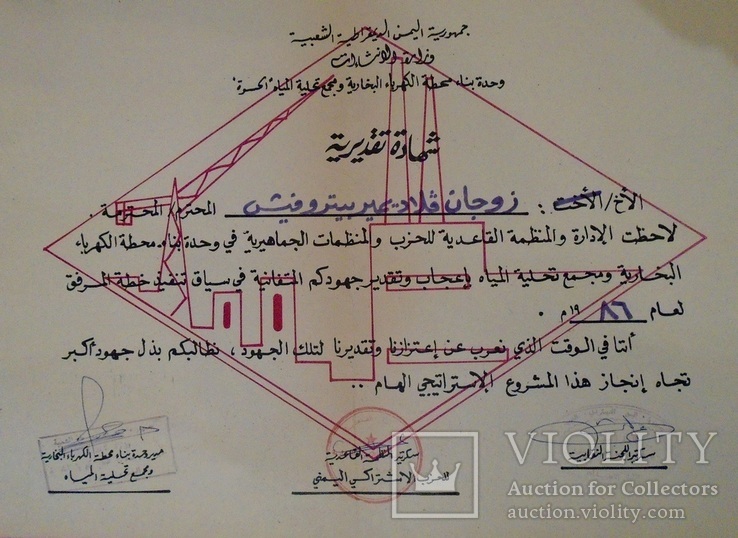 جمهورية اليمن الديمقراطية الشعبية
وزارة الإنشاءات
وحدة بناء محطة الكهرباء البخارية ومجمع تحلية المياه "الحسوة"
شهادة تقديرية
الأخ/الأخت : زوجان ڤلاديمير بيتروفيتش المحترم/ المحترمة .
لاحظت الإدارة والمنظمة القاعدية للحزب والمنظمات الجماهيرية في وحدة بناء محطة الكهرباء
البخارية ومجمع تحلية المياه بإعجاب وتقدير جهودكم المتفانية في سياق تنفيذ خطة المرفق
لعام ١٩٨٦ م .
أننا في الوقت الذي نعرب عن إعتزازنا وتقديرنا لتلك الجهود ، نطالبكم بذل جهود أكبر
تجاه إنجاز هذا المشروع الإستراتيجي الهام ..
مدير وحدة بناء محطة الكهرباء البخارية
ومجمع تحلية المياه
سكرتير المنظمة القاعدية
للحزب الإشتراكي اليمني
سكرتير اللجنة النقابية
VIOLITY
Auction for Collectors
auction.violity.com